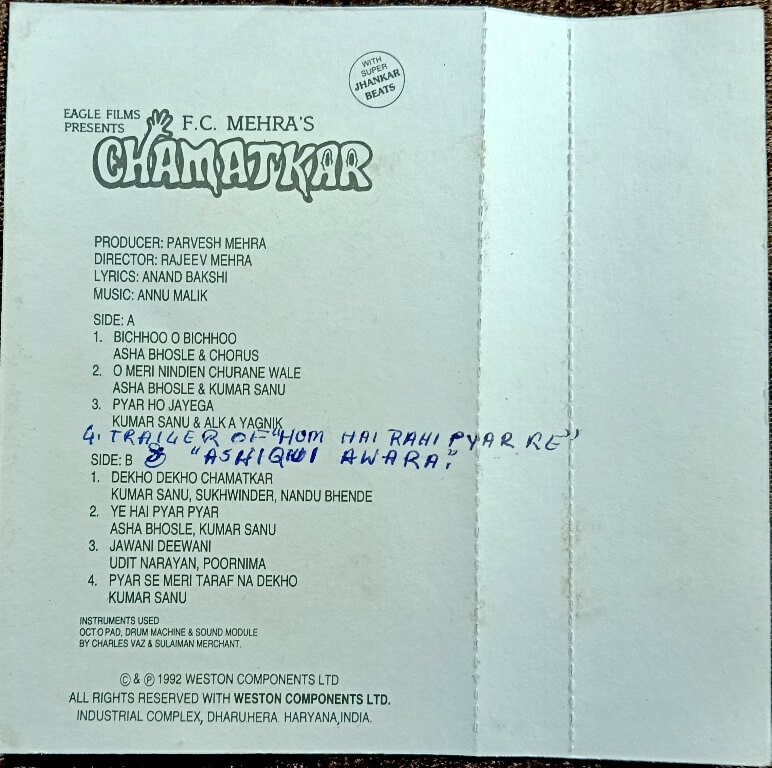 WITH
SUPER
JHANKAR
BEATS
EAGLE FILMS
PRESENTS
F.C. MEHRA'S
CHAMATKAR
PRODUCER: PARVESH MEHRA
DIRECTOR: RAJEEV MEHRA
LYRICS: ANAND BAKSHI
MUSIC: ANNU MALIK
SIDE: A
1. BICHHOO O BICHHOO
ASHA BHOSLE & CHORUS
2. O MERI NINDIEN CHURANE WALE
ASHA BHOSLE & KUMAR SANU
3. PYAR HO JAYEGA
KUMAR SANU & ALK A YAGNIK
4. TRAILER OF "HUM HAI RAHI PYAR RE"
SIDE: B & "ASHIQUI AWARA"
1. DEKHO DEKHO CHAMATKAR
KUMAR SANU, SUKHWINDER, NANDU BHENDE
2. YE HAI PYAR PYAR
ASHA BHOSLE, KUMAR SANU
3. JAWANI DEEWANI
UDIT NARAYAN, POORNIMA
4. PYAR SE MERI TARAF NA DEKHO
KUMAR SANU
INSTRUMENTS USED
OCT O PAD, DRUM MACHINE & SOUND MODULE
BY CHARLES VAZ & SULAIMAN MERCHANT.
© & ℗ 1992 WESTON COMPONENTS LTD
ALL RIGHTS RESERVED WITH WESTON COMPONENTS LTD.
INDUSTRIAL COMPLEX, DHARUHERA HARYANA,INDIA.